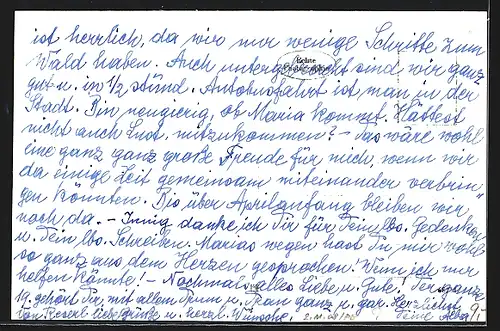 ist herrlich, da wir nur wenige Schritte zum
Wald haben. Auch untergebracht sind wir ganz
gut u. in 1/2 stünd. Autobusfahrt ist man in der
Stadt. Bin neugierig, ob Maria kommt. Hättest
nicht auch Lust mitzukommen? – Das wäre wohl
eine ganz ganz große Freude für mich, wenn wir
da einige Zeit gemeinsam miteinander verbrin-
gen könnten. Bis über Aprilanfang bleiben wir
noch da. – Innig danke ich Dir für Dein lbs. Gedenken
u. Dein lbs. Schreiben. Marias wegen hast Du mir wohl
so ganz aus dem Herzen gesprochen! Wenn ich nur
helfen könnte! – Nochmals alles Liebe u. Gute!
19. gehört Dir mit allem Drum u. Dran ganz u. gar. Herzlichst
von Reserl liebe Grüße u. herzl. Wünsche! Deine